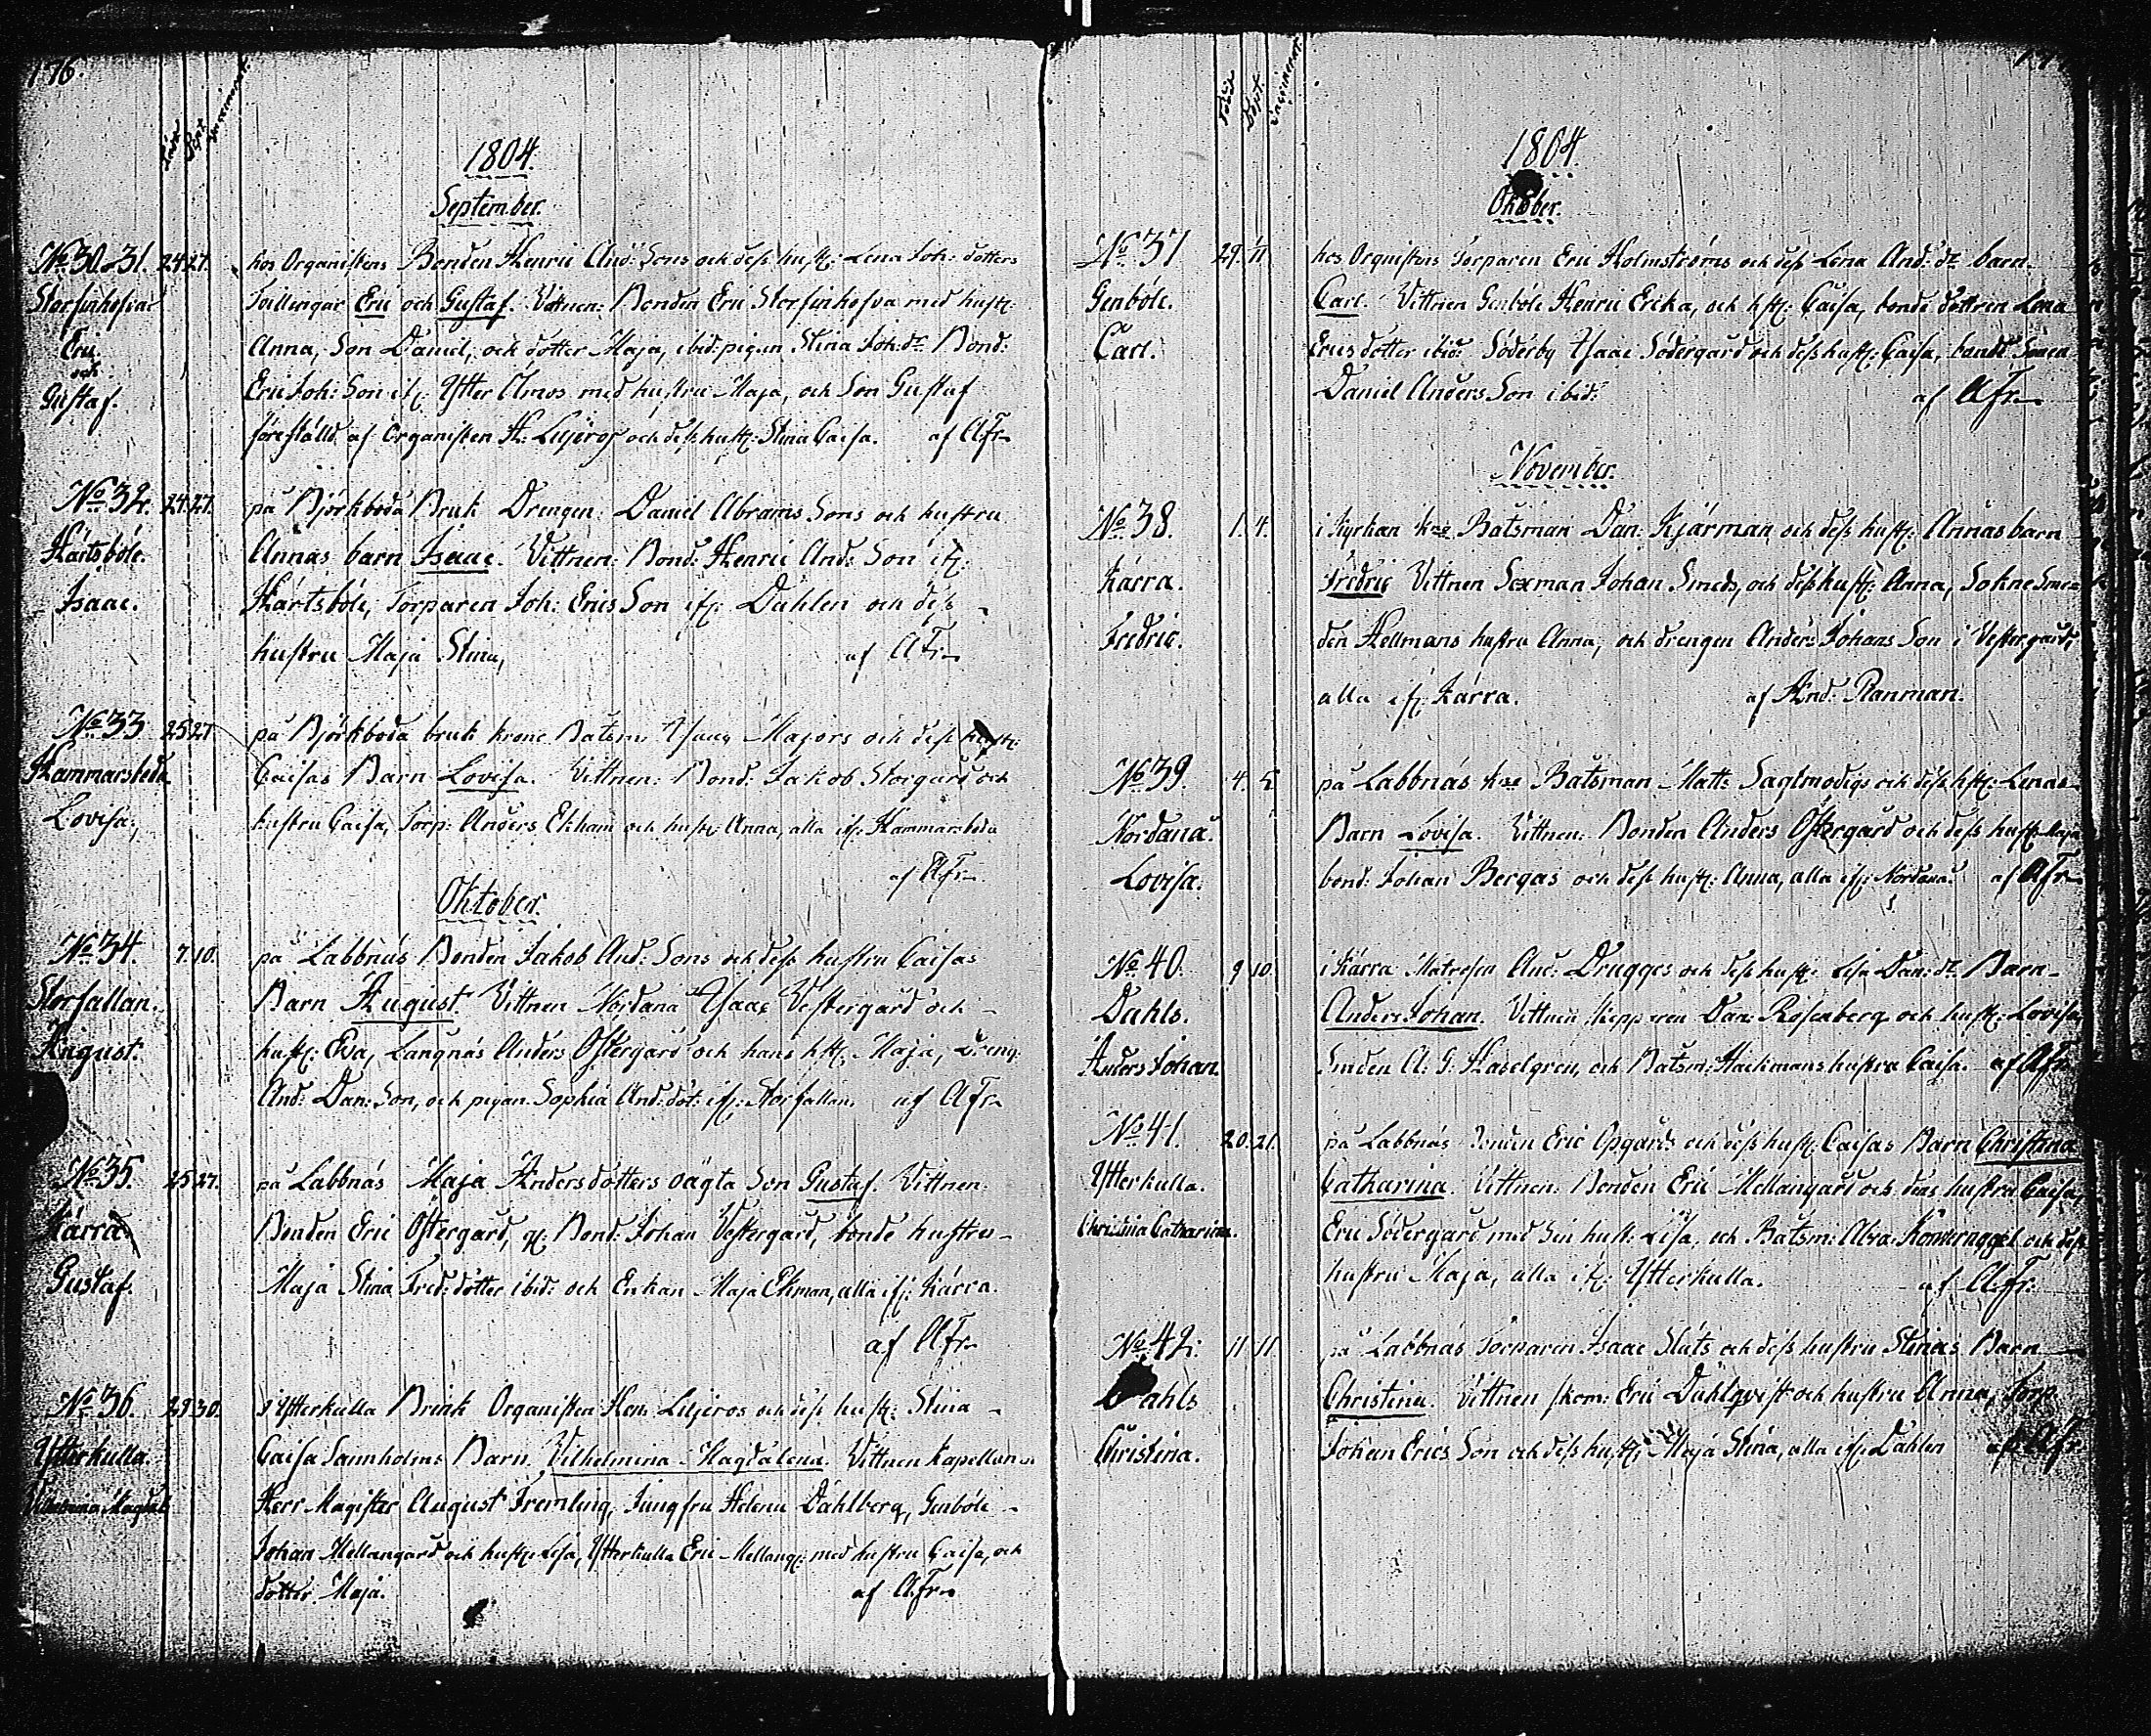 176.
Född Döpt
1804.
September.
No 30. 31. 24. 27. hos Organistens Bonden Henric And: Sons och dess hust: Lena Joh: dotters
Storfinhofva Tvillingar Eric och Gustaf. Vittnen: Bonden Eric Storfinhofva med hust:
Eric Anna, Son Daniel, och dotter Maja, ibid: pigan Stina Joh: dr Bond:
och Eric Joh: Son if: Ytter Ölmos med hustru Maja, och Son Gustaf
Gustaf. föreställd af Organisten H: Liljeros och dess hust: Stina Caisa. af A Fr
No 32. 24. 27. på Björkboda Bruk Drengen: Daniel Abrams Sons och hustru
Hertsböle. Annas barn Isaac. Vittnen: Bond: Henric And: Son if:
Isaac. Hertsböle, Torparen Joh: Erics Son if: Dahlen och dess
hustru Maja Stina, af A Fr
No 33 25 27 på Björkboda bruk krono Båtsm: Isaac Majors och dess hust:
Hammarsboda Caisas Barn Lovisa. Vittnen: Bond: Jakob Storgård och
Lovisa. hustru Caisa, Torp: Anders Ekham och hust: Anna, alla if: Hammarsboda
af A Fr
Oktober.
No 34. 7. 10. på Labbnäs Bonden Jakob And: Sons och dess hustru Caisas
Storfallan. Barn August. Vittnen Nordanå Isaac Vestergård och
August. hust: Eva, Langnäs Anders Östergård och hans hst: Maja, dreng:
And: Dan: Son, och pigan Sophia And: dot: if: Storfallan. af A Fr
No 35. 25 27. på Labbnäs Maja Anders dotters oägta Son Gustaf. Vittnen:
Kärra Bonden Eric Östergård, Bond: Johan Vestergård, bonde hustru
Gustaf. Maja Stina Fred: dotter ibid: och Enkan Maja Ekman, alla if: Kärra.
af A Fr
No 36. 29 30. i Ytterkulla Brink Organisten Hen: Liljeros och dess hust: Stina
Ytterkulla. Caisa Sannholms Barn Vilhelmina Magdalena. Vittnen Kapellan
Vilhelmina Magdal: Herr Magister August Fremling, Jungfru Helena Dahlberg, Genböle
Johan Mellangård och hust: Lisa, Ytterkulla Eric Mellang: med hustru Caisa, och
dotter Maja. af A Fr
Född Döpt
1804.
Oktober.
No 37 29. 11 hos Organistens Torparen Eric Holmströms och dess Lena And: dr barn
Genböle. Carl. Vittnen Genböle Henric Ericka, och hst: Caisa, bonde dottren Lena
Carl. Erics dotter ibid: Söderby Isaac Södergård och dess hust: Caisa, bonde Sonen
Daniel Anders Son ibid: af A Fr
November.
No 38. 1. 4. i Kyrkan kro Båtsman Dan: Kjärman och dess hust: Annas barn
Kärra. Fredric Vittnen Sexman Johan Smeds, och dess hust: Anna, Sokne Sme-
Fredric. den Hellmans hustru Anna, och drengen Anders Johans Son i Vestergård,
alla if: Kärra. af And: Ranman.
No 39. 4. 5 på Labbnäs kro Båtsman Matts Sagtmodigs och dess hst: Lenas
Nordanå. Barn Lovisa. Vittnen: Bonden Anders Östergård och dess hust: Maja
Lovisa. bond: Johan Bergas och dess hust: Anna, alla if: Nordanå. af A Fr
No 40. 9 10. i Kärra Matrosen And: Drugges och dess hust: Lisa Dan: dr Barn
Dahls. Anders Johan. Vittnen skepparen Dan: Rosenberg och hust: Lovisa,
Anders Johan. Smeden A: G: Haselgren, och Båtsm: Hackmans hustru Caisa. af A Fr
No 41. 20. 21. på Labbnäs Bonden Eric Opgårds och dess hust: Caisas Barn Christina
Ytterkulla. Catharina. Vittnen: Bonden Eric Mellangård och dess hustru Caisa,
Christina Catharina. Eric Södergård med sin hust: Lisa, och Båtsm: Abra: och dess
hustru Maja, alla if: Ytterkulla. af A. Fr:
No 42. 11 11. på Labbnäs Torparen Isaac Sluts och dess hustru Stinas Barn
Dahls Christina. Vittnen skom: Eric Dahlqvist och hustru Anna, Torp:
Christina. Johan Erics Son och dess hust: Maja Stina, alla if: Dahlen af A Fr